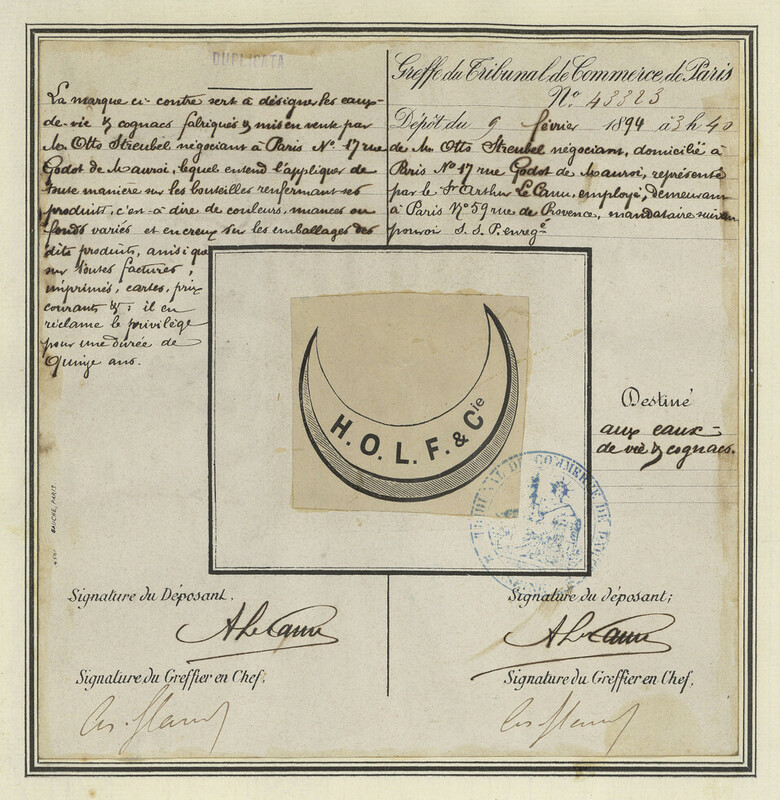 DUPLICATA
La marque ci-contre sert à désigner les eaux-
de-vie & cognacs fabriqués & mis en vente par
Mr. Otto Streubel négociant à Paris No. 17 rue
Godot de Mauroi, lequel entend l'appliquer de
toute manière sur les bouteilles renfermant ses
produits, c'en-à dire de couleurs, nuances ou
fonds variés et en creux sur les emballages des
dits produits, ainsi que
sur toutes factures,
imprimés, cartes, prix
courants &; il en
réclame le privilége
pour une durée de
Quinze ans.
Greffe du Tribunal de Commerce, de Paris
No. 43323
Dépôt du 9 février 1894 à 3 h 40
de Mr. Otto Streubel négociant, domicilié à
Paris No 17 rue Godot de Mauroi, représenté
par le Sr. Arthur Le Cam, employé, demeurant
à Paris No 59 rue de Provence, mandataire suivant
pouvoir S. S. P. enregé.
H. O. L. F. & Cie
Destiné
aux eaux-
de vie & cognacs.
TRIBUNAL DE COMMERCE DE PARIS
Signature du Déposant.
Signature du déposant;
Signature du Greffier en Chef,
Signature du Greffier en Chef,